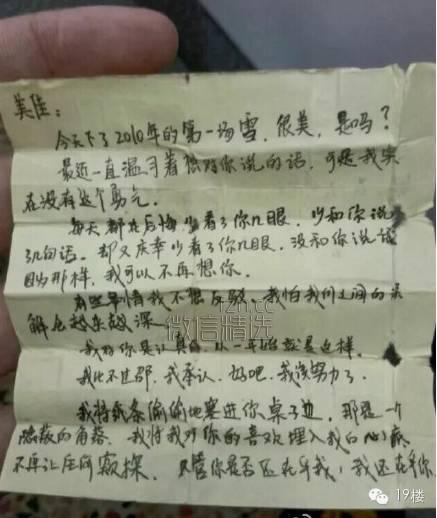 美佳:
今天下了2010年的第一场雪,很美,是吗?
最近一直温习着你对你说的话,可是我实
在没有这个勇气。
每天都在后悔少看了你几眼,少和你说
了几句话。却又庆幸少看了你几眼,没和你说话
因为那样,我可以不再想你。
有些事情我不想反驳、我怕我们之间的误
解会越来越深
我对你是认真的,从一开始就是这样。
我比不过邵,我承认,好吧,我该努力了。
我将纸条偷偷地塞进你桌子边,那是一个
隐蔽的角落。我将我对你的喜欢埋入我的心底
不再让任何窥探。只管你是否还在乎我,我还在乎你
1zn.cc
微信精选
19楼